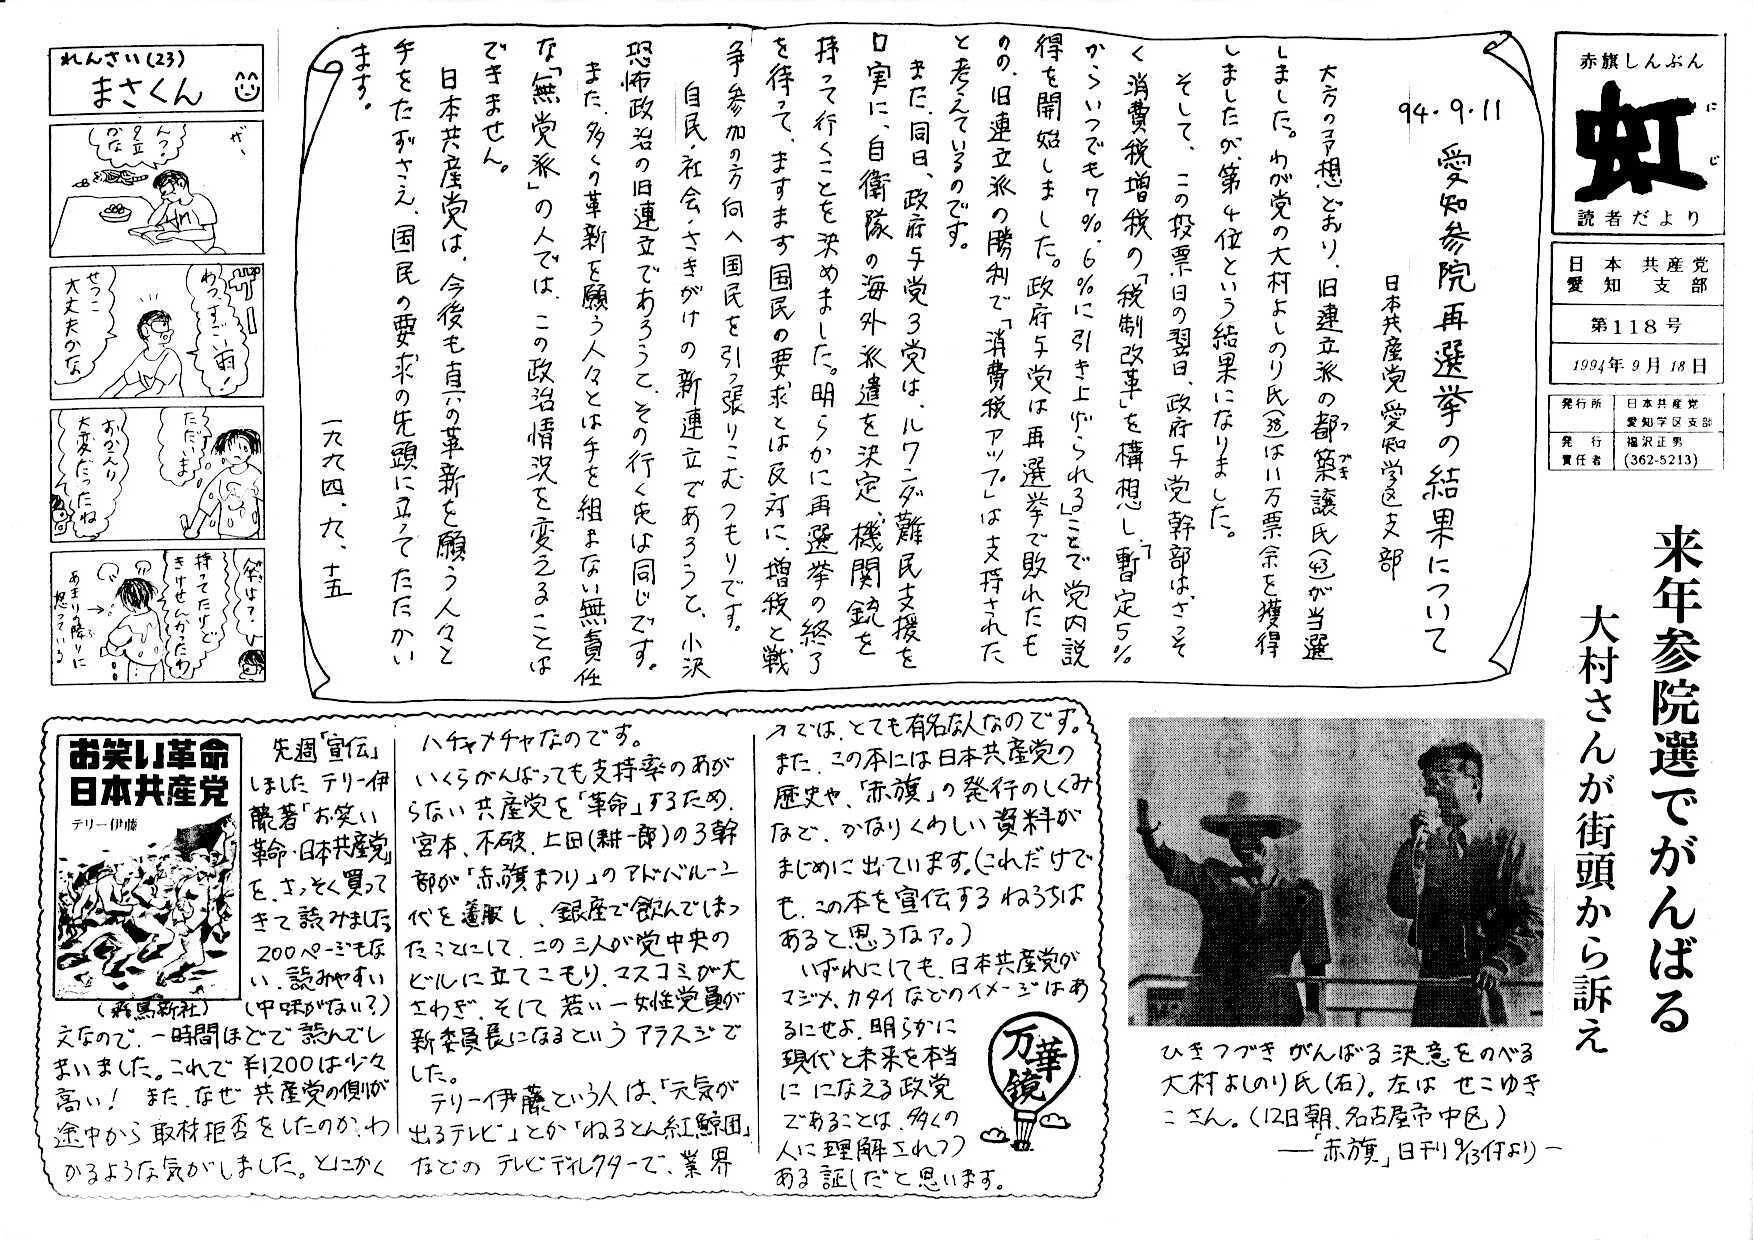 赤旗しんぶん
虹
にじ
読者だより
日本共産党
愛知支部
第118号
1994年9月18日
発行所 日本共産党
愛知学区支部
発行責任者 福沢正男
(362-5213)
来年参院選でがんばる
大村さんが街頭から訴え
94.9.11
愛知参院再選挙の結果について
日本共産党愛知学区支部
大方の予想どおり、旧連立派の都築譲氏(43)が当選
つづき
しました。わが党の大村よしのり氏(38)は11万票余を獲得
しましたが、第4位という結果になりました。
そして、この投票日の翌日、政府与党幹部は、さっそ
く消費税増税の「税制改革」を構想し、「暫定5%
からいつでも7%、6%に引き上げられる」ことで党内説
得を開始しました。政府与党は再選挙で敗れたも
のの、旧連立派の勝利で「消費税アップ」は支持された
と考えているのです。
また、同日、政府与党3党は、ルワンダ難民支援を
口実に、自衛隊の海外派遣を決定、機関銃を
持って行くことを決めました。明らかに再選挙の終了
を待って、ますます国民の要求とは反対に、増税と戦
争参加の方向へ国民を引っ張りこむつもりです。
自民・社会・さきがけの新連立であろうと、小沢
恐怖政治の旧連立であろうと、その行く先は同じです。
また、多くの革新を願う人々とは手を組まない無責任
な「無党派」の人では、この政治情況を変えることは
できません。
日本共産党は、今後も真の革新を願う人々と
手をたずさえ、国民の要求の先頭に立ってたたかい
ます。
一九九四、九、十五
れんさい(23)
まさくん
ザー
んっ?
夕立
かな
ザー
わっ、すごい雨!
せつこ
大丈夫かな
ただいま
おかえり
大変だったね
傘は?
持ってたけど
きけせんかったわ
あまりの降りに
怒っている
お笑い革命
日本共産党
テリー伊藤
(飛鳥新社)
先週「宣伝」
しました テリー伊
藤著「お笑い
革命・日本共産党」
を、さっそく買って
きて読みました。
200ページもな
い、読みやすい
(中味がない?)
文なので、一時間ほどで読んでし
まいました。これで¥1,200は少々
高い! また、なぜ共産党の側が
途中から取材拒否をしたのか、わ
かるような気がしました。とにかく
ハチャメチャなのです。
いくらがんばっても支持率のあが
らない共産党を「革命」するため、
宮本、不破、上田(耕一郎)の3幹
部が「赤旗まつり」のアドバルーン
代を着服し、銀座で飲んでしまっ
たことにして、この三人が党中央の
ビルに立てこもり、マスコミが大
さわぎ、そして若い一女性党員が
新委員長になるというアラスジで
した。
テリー伊藤という人は、「元気が
出るテレビ」とか「ねるとん紅鯨団」
などのテレビディレクターで、業界
↗では、とても有名な人なのです。
また、この本には日本共産党の
歴史や、「赤旗」の発行のしくみ
など、かなりくわしい資料が
まじめに出ています。(これだけで
も、この本を宣伝するねうちは
あると思うなア。)
いずれにしても、日本共産党が
マジメ、カタイなどのイメージはあ
るにせよ、明らかに
現代と未来を本当
に になえる政党
であることは、多くの
人に理解されつつ
ある証しだと思います。
万華鏡
ひきつづきがんばる決意をのべる
大村よしのり氏(右)。左は せこゆき
こさん。(12日朝、名古屋市中区)
―「赤旗」日刊9/13付より―